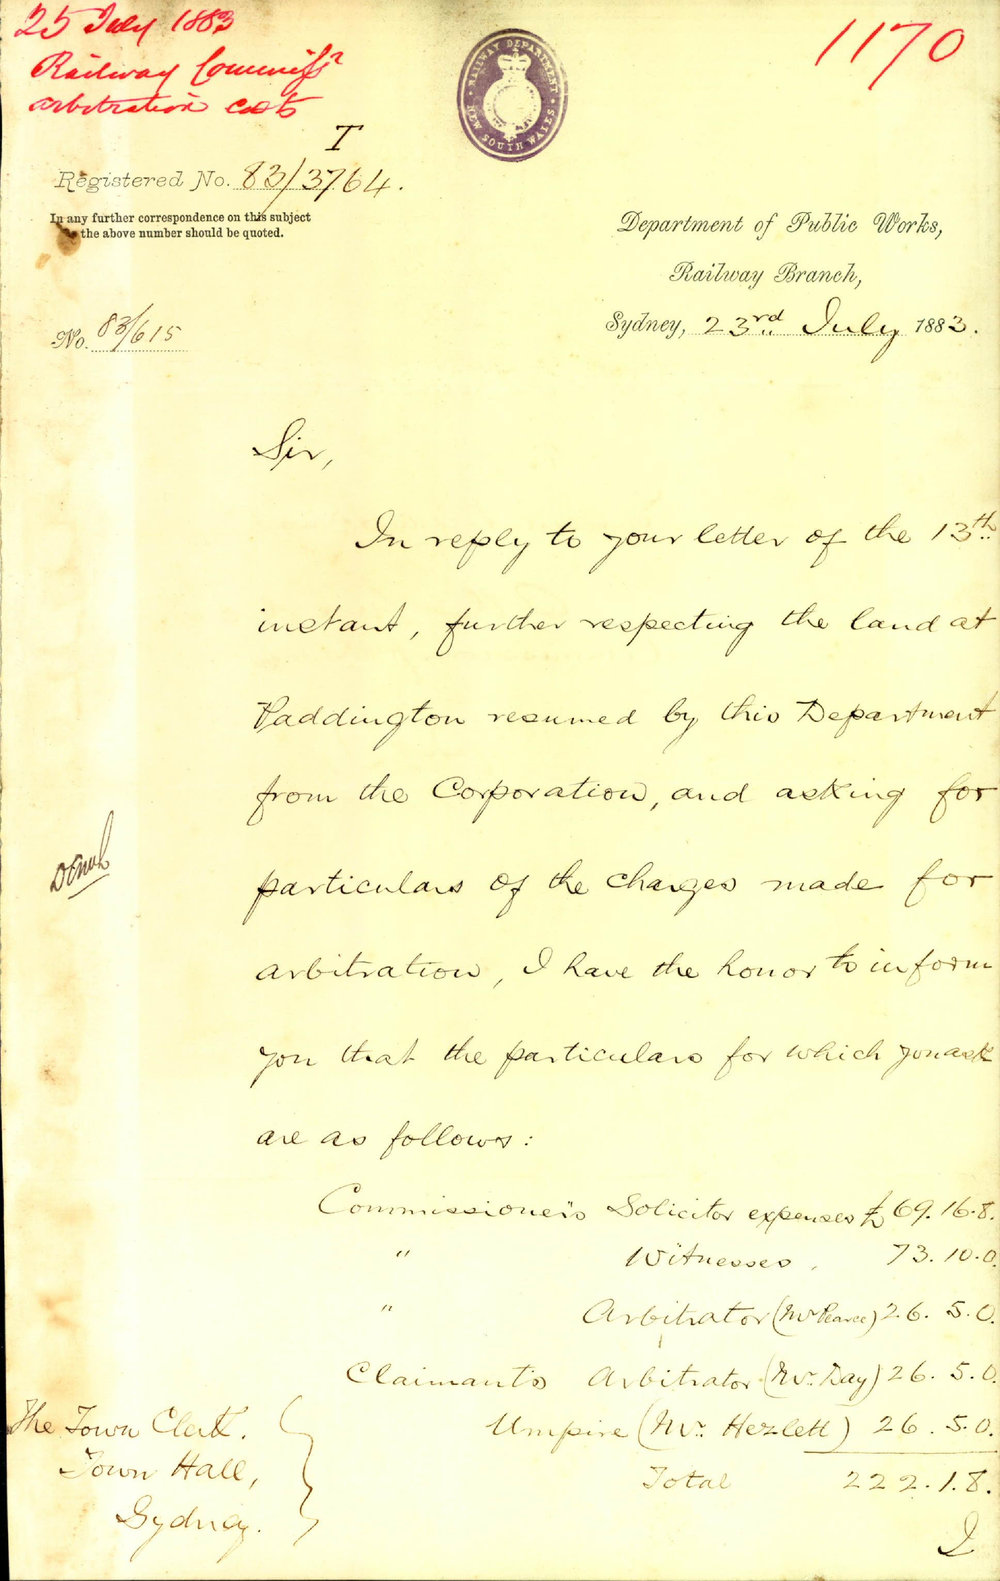 25 July 1883
Railway Commissr
arbitration costs
1170
RAILWAY DEPARTMENT
NEW SOUTH WALES
T
Registered No. 83/3764.
In any further correspondence on this subject
the above number should be quoted.
Department of Public Works,
Railway Branch,
Sydney, 23rd July 1883.
No. 83/615
Sir,
In reply to your letter of the 13th
instant, further respecting the land at
Paddington resumed by this Department
from the Corporation, and asking for
particulars of the charges made for
arbitration, I have the honor to inform
you that the particulars for which you ask
are as follows:
Commissioner's Solicitor expenses £69.16.8.
" Witnesses 73.10.0.
" Arbitrator (Mr Pearce) 26.5.0.
Claimant's Arbitrator (Mr. Day) 26.5.0.
Umpire (Mr. Hezlett) 26.5.0.
Total 222.1.8.
The Town Clerk.
Town Hall,
Sydney.
I